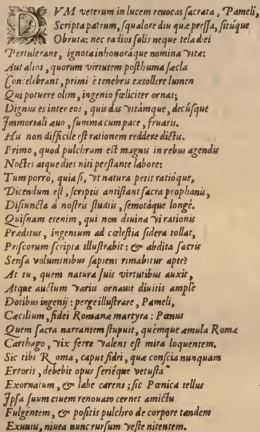 DVM veterum in lucem reuocas sacrata, Pameli,
Scripta patrum, squalore diu quæ pressa, sitúque
Obruta: nec radios solis neque tela diei
Pertulerant, ignota inhonoráque nomina vita:
Aut alios, quorum virtutem posthuma sæcla
Concelebrant, primi è tenebris extollere lumen
Qui potuere olim, ingenio fœliciter ornas;
Dignus es inter eos, quis dus vitámque, decúsque
Immortali æuo, summa cum pace, fruaris.
Hu non difficile est rationem reddere dictu.
Primo, quod pulchrum est magnis in rebus agendis
Noctes atque dies niti præstante labore:
Tum porrò, quia si, vt natura petit ratióque,
Dicendum est, scriptis antistant sacra prophanis,
Disiuncta à nostris studiis, semotáque longè.
Quisnam etenim, qui non diuina vi rationis
Præditus, ingenium ad cælestia sidera tollat,
Priscorum scripta illustrabit: & abdita sacris
Sensa voluminibus sapiens rimabitur aptè?
At tu, quem natura suis virtutibus auxit,
Atque auctum variis ornauit diuitis amplè
Dotibus ingenij: perge illustrare, Pameli,
Cæcilium, fidei Romanæ martyra: Pœnus
Quem sacra narrantem stupuit, quémque æmula Romæ
Carthago, vix ferre valens est mira loquentem.
Sic tibi Roma, caput fidei, quæ conscia nunquam
Erroris, debebit opus seriéque vetusta
Exornatum, & labe carens; sic Pœnica tellus
Ipsa suum ciuem renouato cernet amictu
Fulgentem, & positis pulchro de corpore tandem
Exuuiis, niuea nunc rursum veste nitentem.